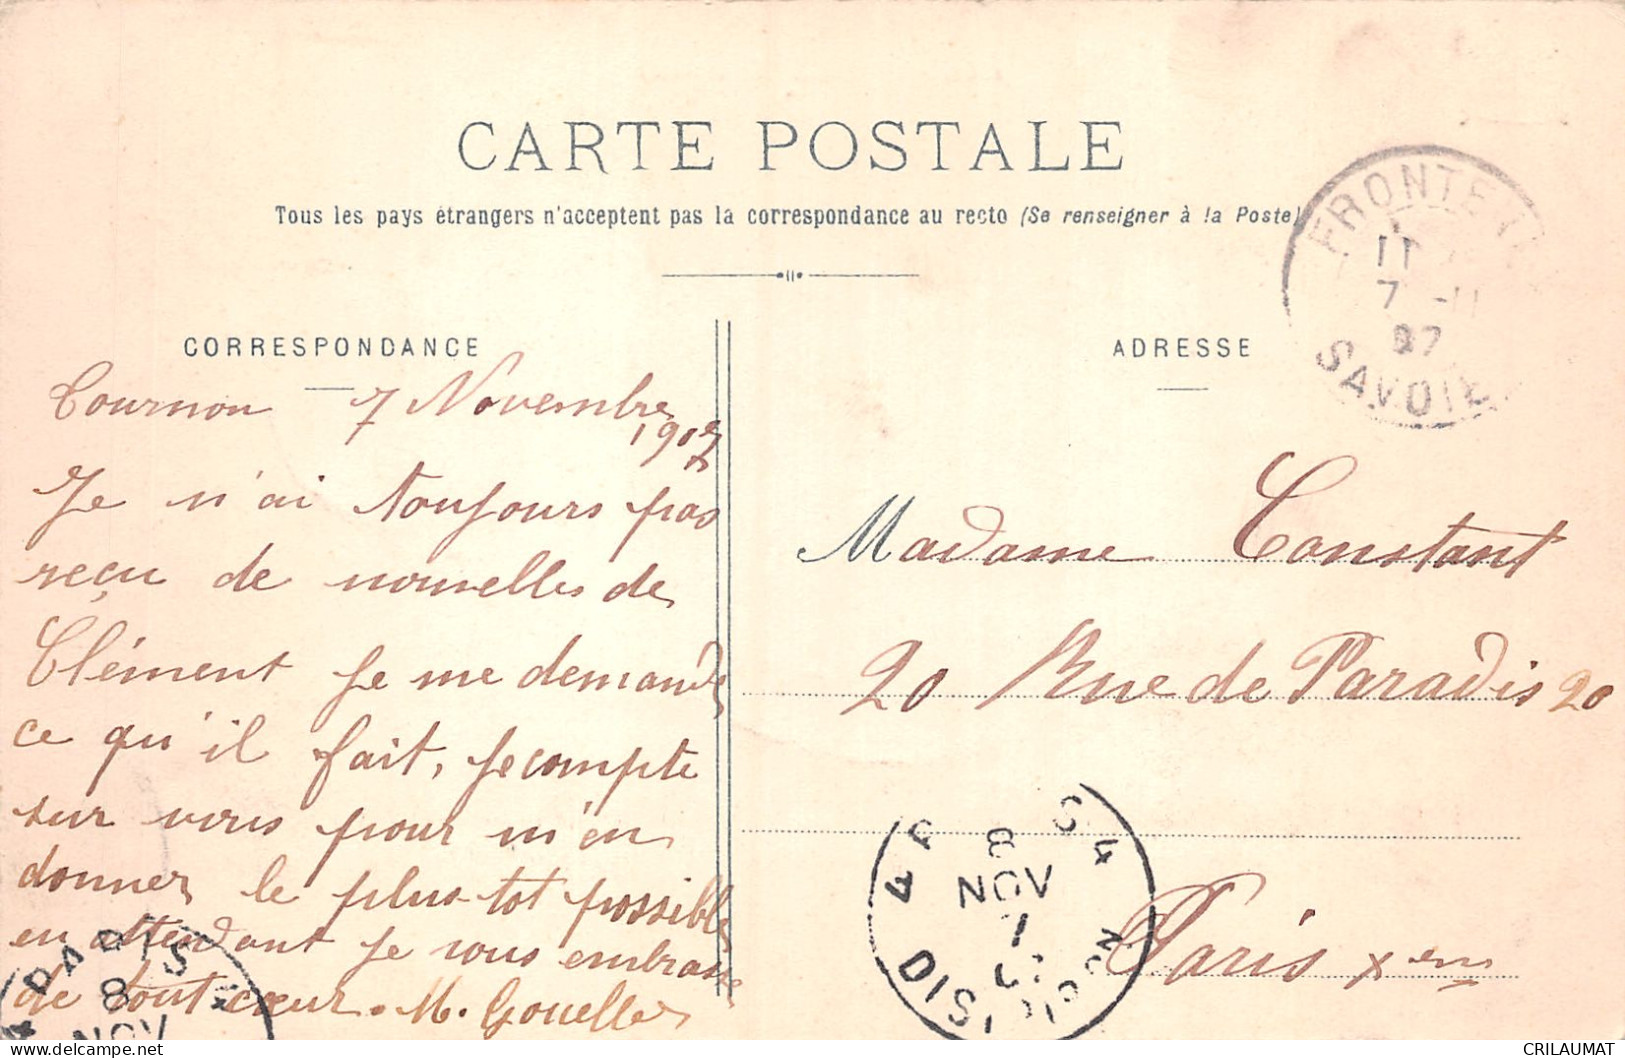 CARTE POSTALE
Tous les pays étrangers n'acceptent pas la correspondance au recto (Se renseigner à la Poste)
CORRESPONDANCE
Tournon 7 Novembre
1907
Je n'ai toujours pas
reçu de nouvelles de
Clément je me demande
ce qu'il fait, je compte
sur vous pour m'en
donner le plus tot possible
en attendant je vous embrasse
de tout cœur. M. Gouelle
ADRESSE
Madame Constant
20 Rue de Paradis 20
Paris xem
FRONTE
11
7 -11
07
SAVOIE
8
NOV
DISTRIBUTION
8
NOV
CRILAUMAT